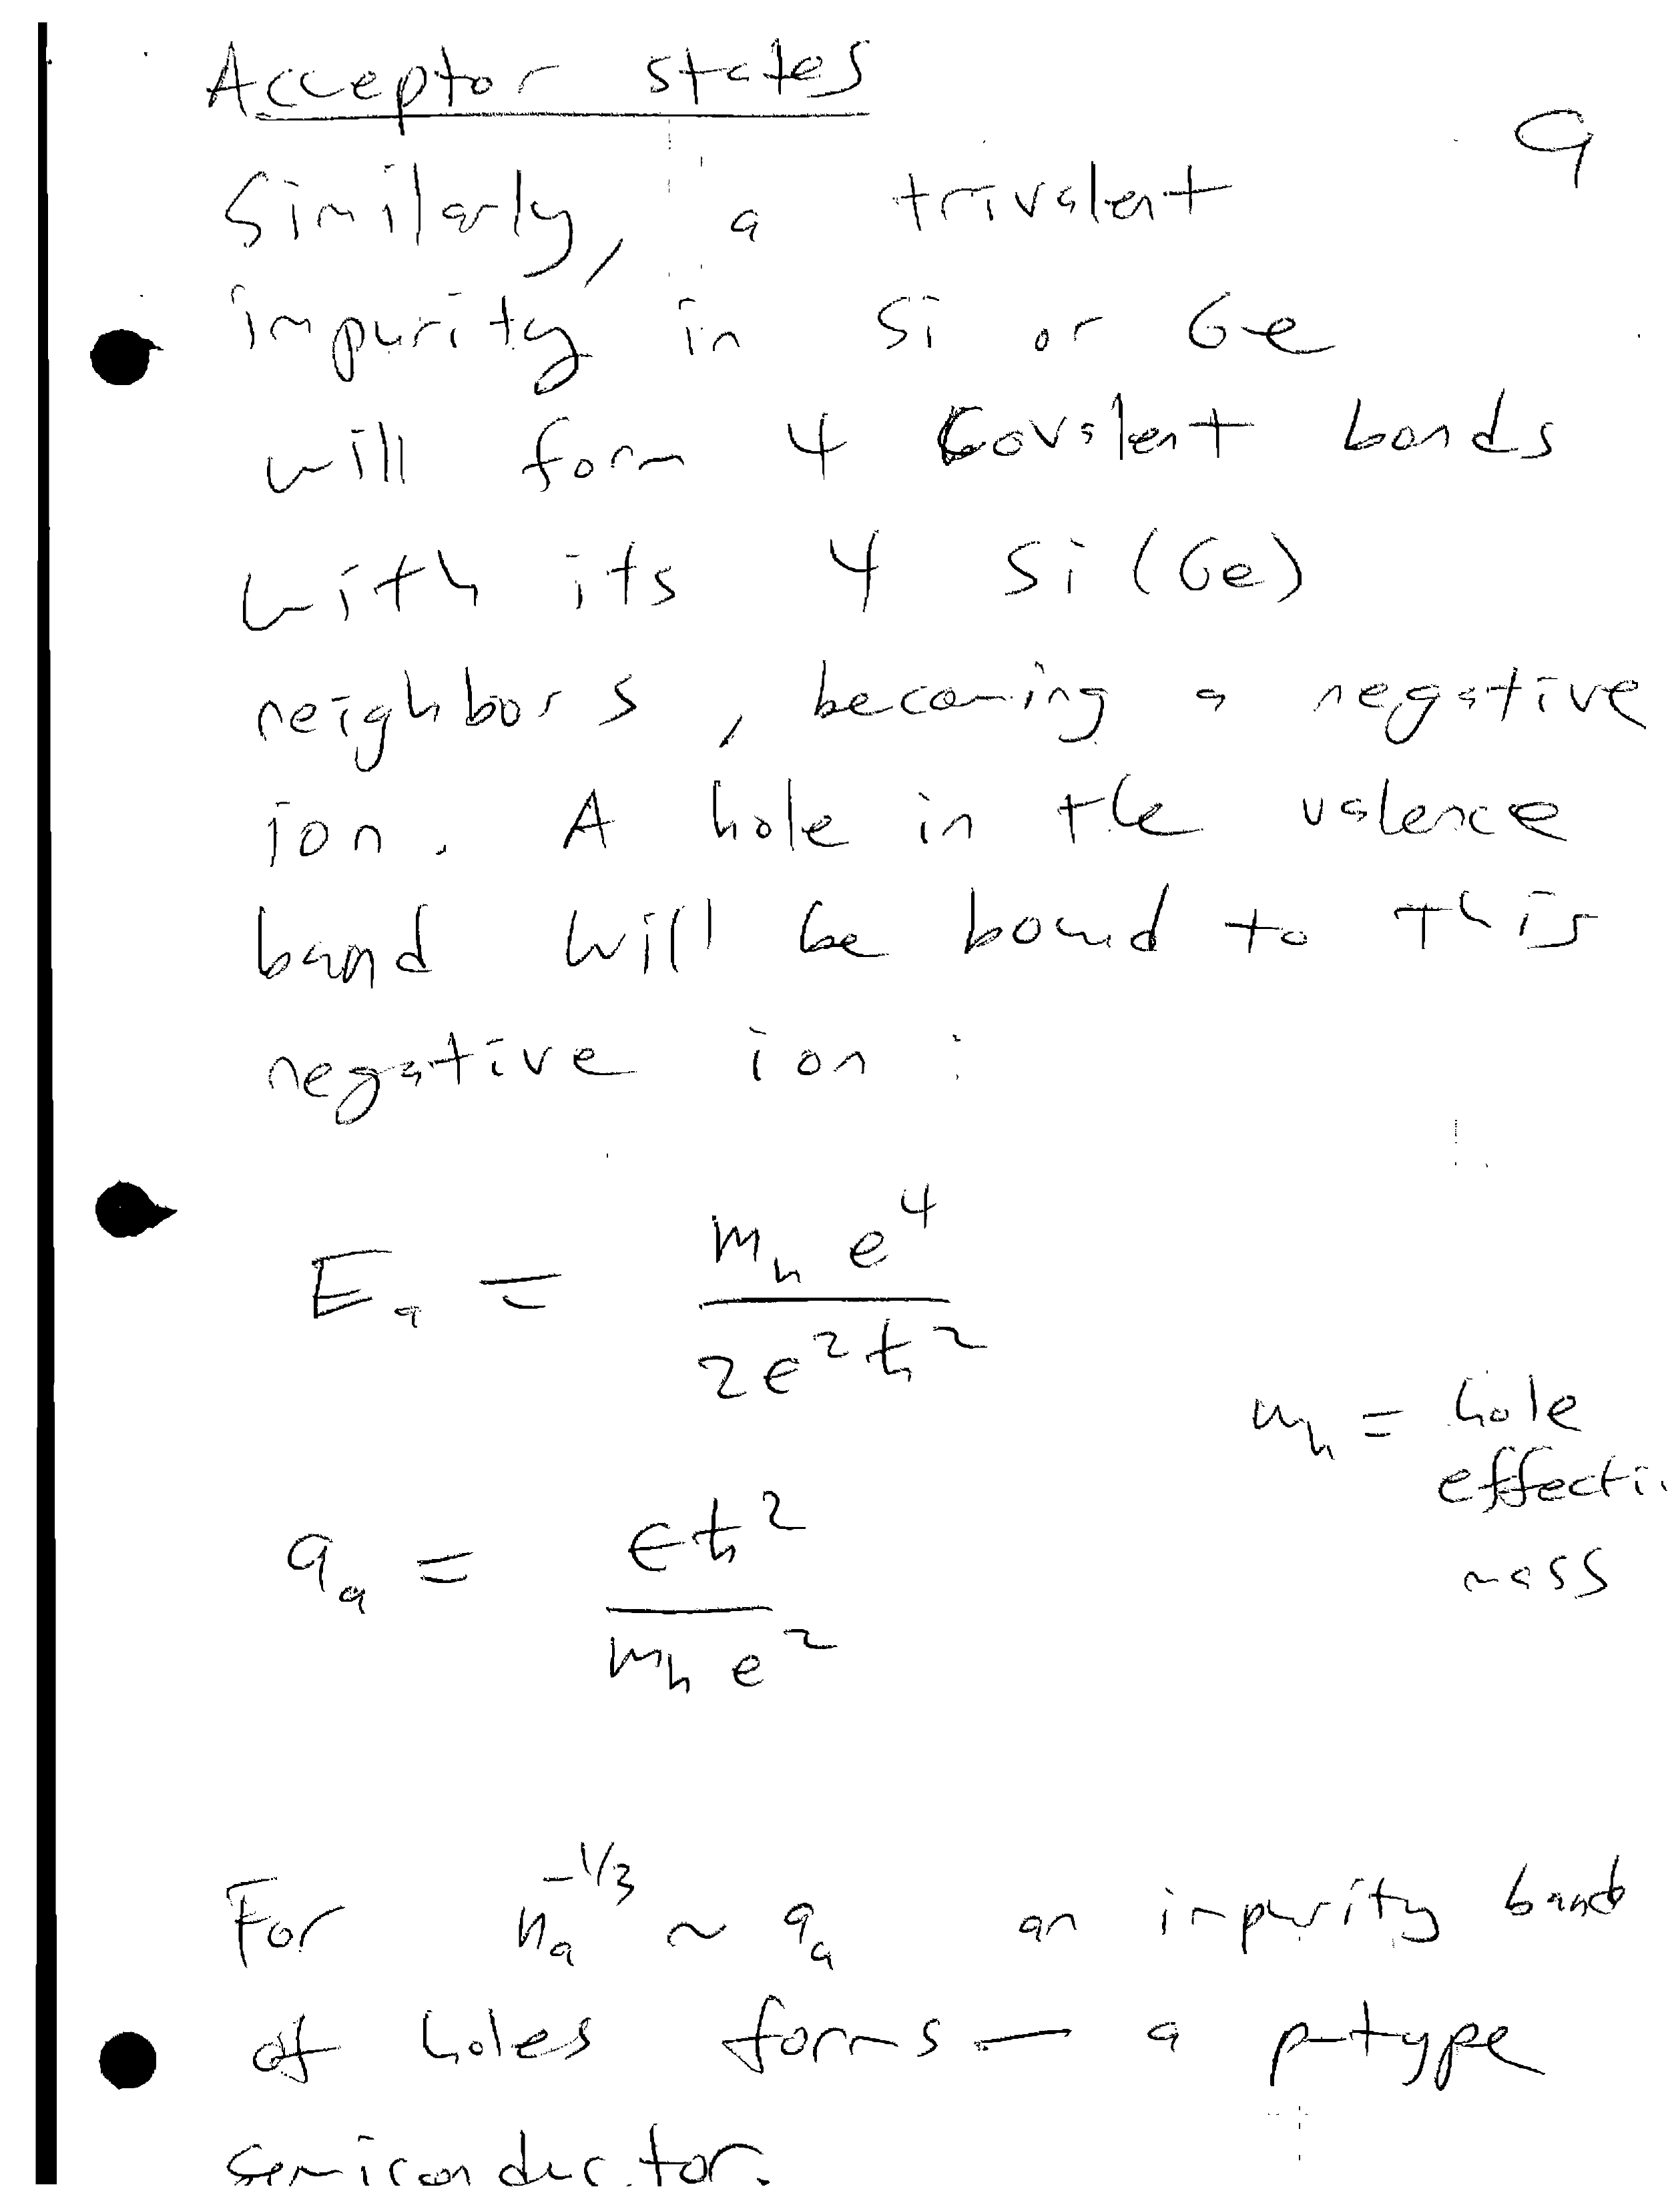 Acceptor states
9
Similarly, a trivalent
impurity in Si or Ge
will form 4 Covalent bonds
with its 4 Si (Ge)
neighbors, becoming a negative
ion. A hole in the valence
band will be bound to this
negative ion:
E_a = m_h e^4 / 2ϵ^2ħ^2
m_h = hole
effecti
mass
a_a = ϵħ^2 / m_h e^2
For n_a^{-1/3} ~ a_a an impurity band
of holes forms — a p-type
semiconductor.